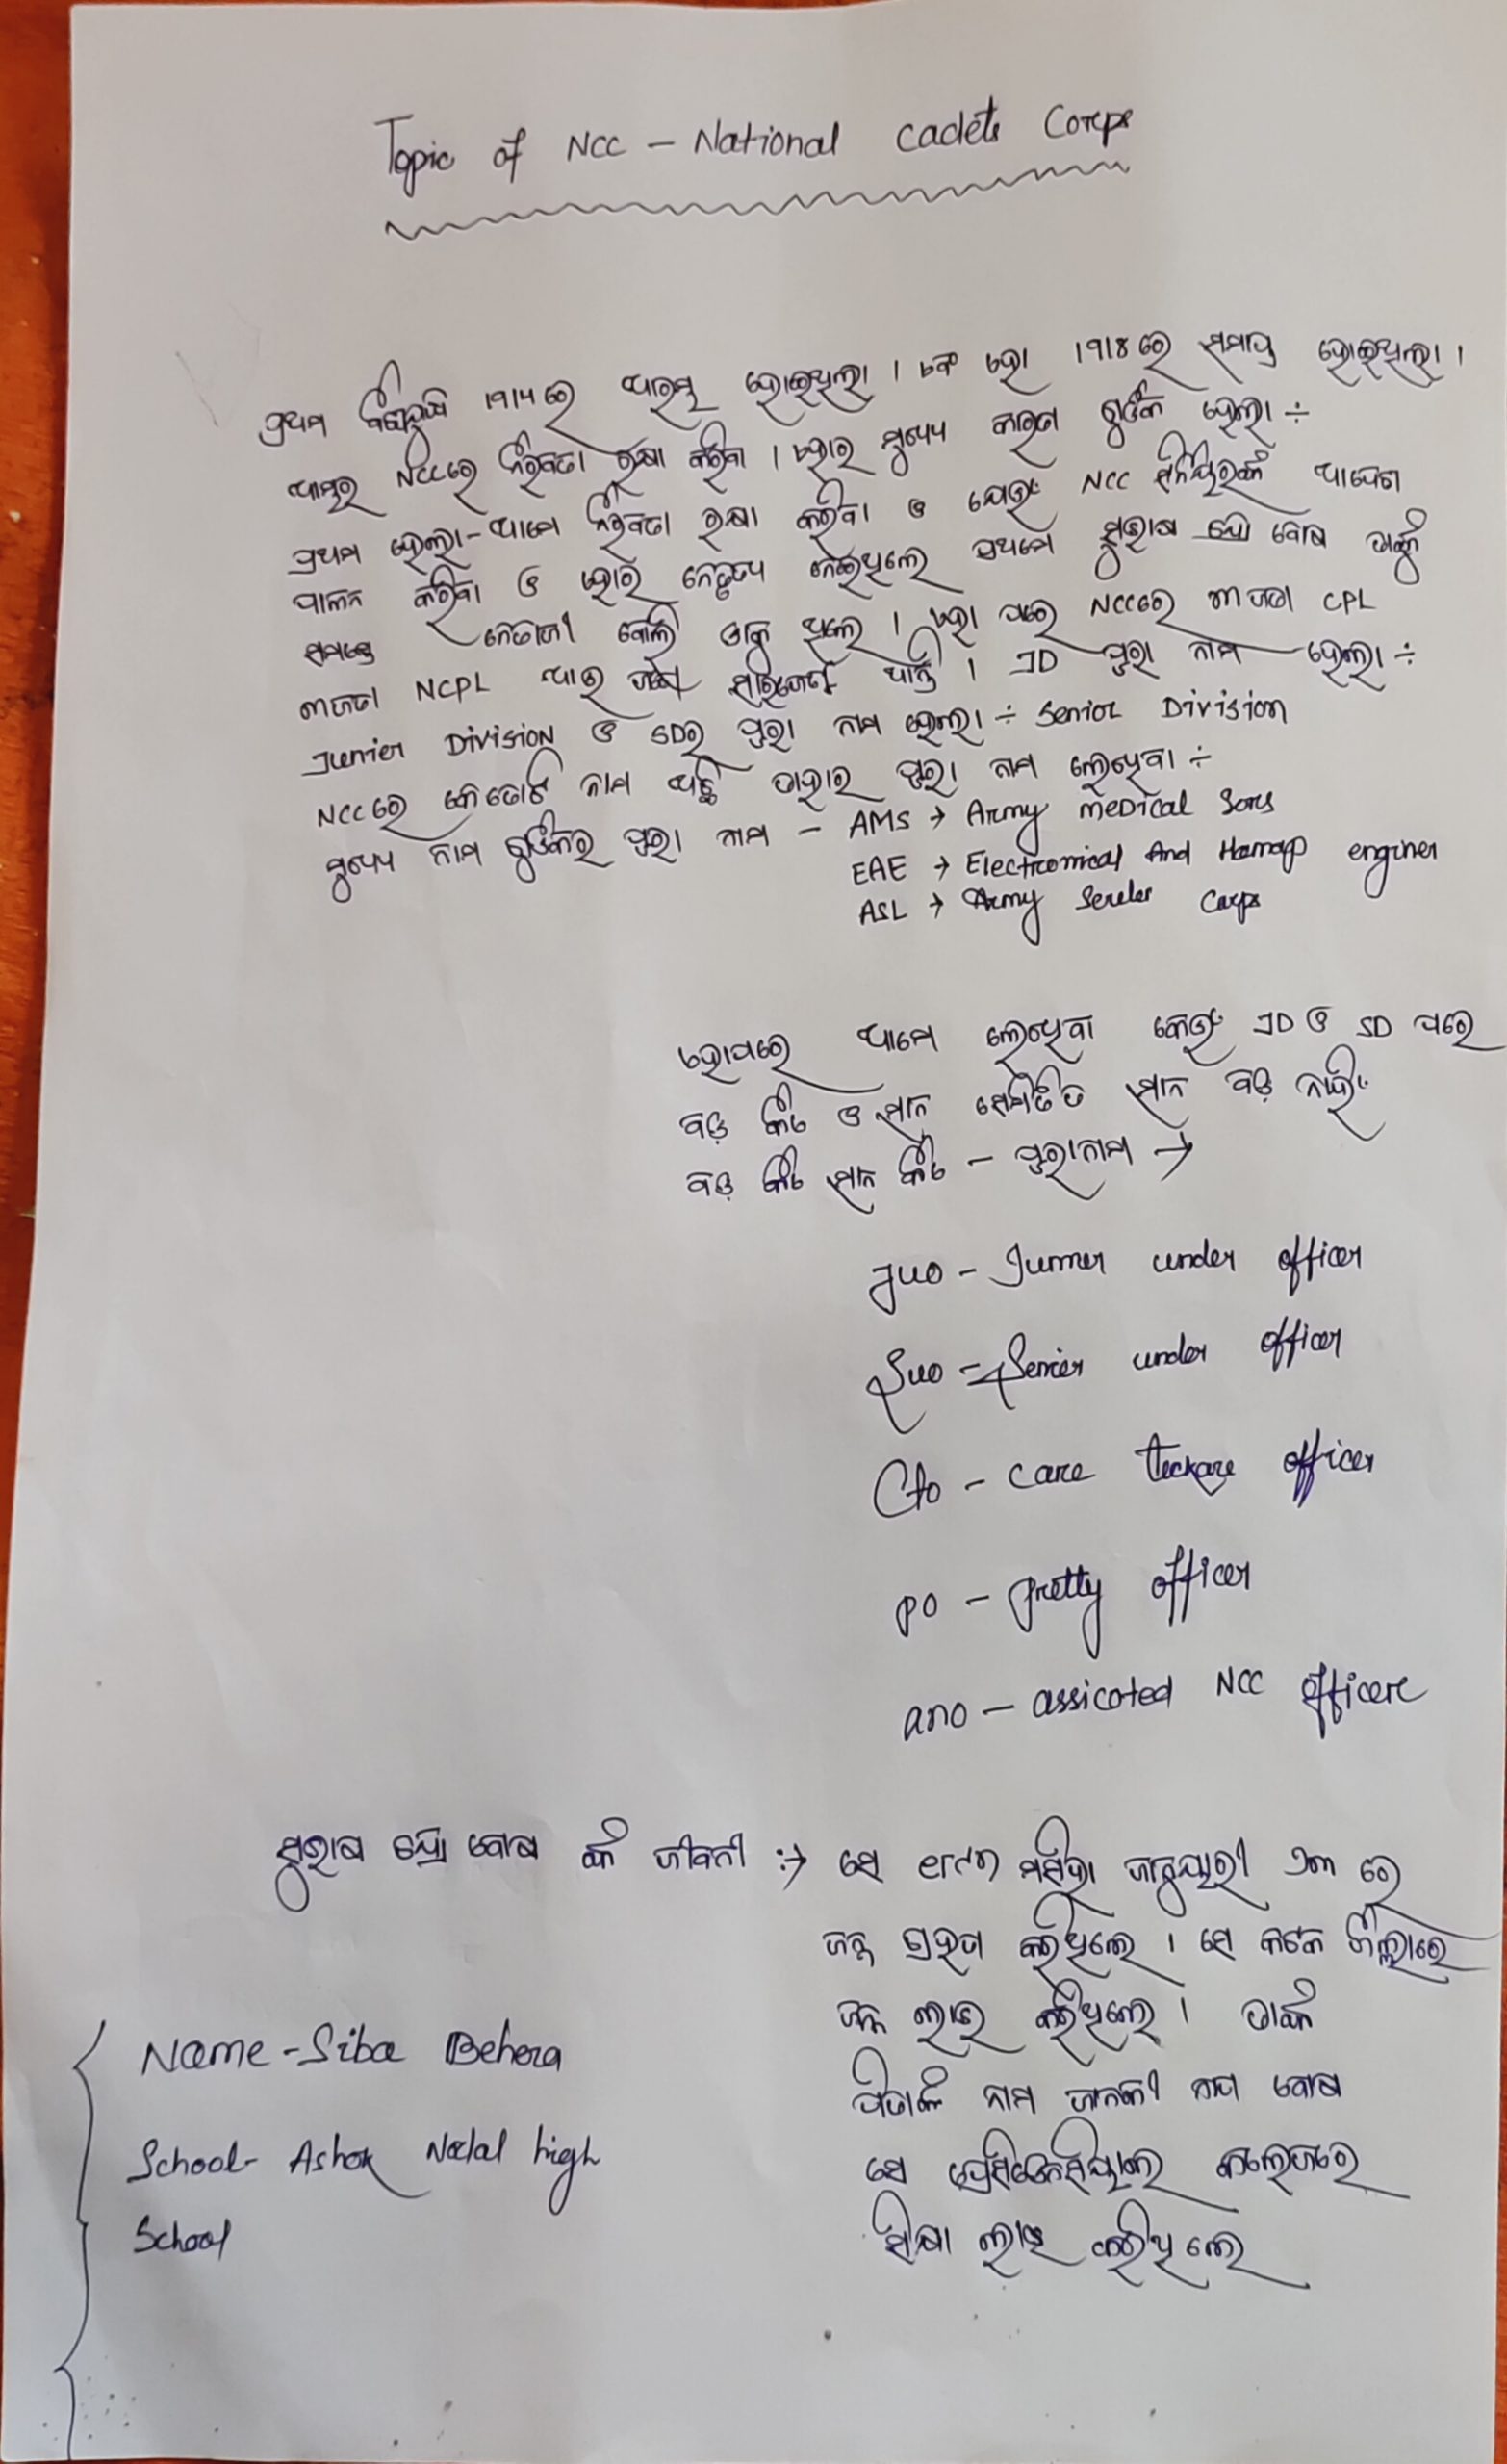 Topic of NCC - National Cadets Corps
ପ୍ରଥମ ବିଶ୍ୱଯୁଦ୍ଧ 1914 ରେ ଆରମ୍ଭ ହୋଇଥିଲା । ଏହା 1918 ରେ ସମାପ୍ତ ହୋଇଥିଲା ।
NCC ରେ ନିରବତା ରକ୍ଷା କରିବା । ମୁଖ୍ୟ କାରଣ ଗୁଡିକ ହେଲା ÷
ପ୍ରଥମ ହେଲା - ଆମେ ନିରବତା ରକ୍ଷା କରିବା ଓ NCC ଆଦେଶ
ପାଳନ କରିବା ଓ ନେତୃତ୍ୱ ନେଇଥିଲେ ପ୍ରଥମେ ସୁଭାଷ ବୋଷ
ସମସ୍ତେ ନେତାଜୀ ବୋଲି ଡାକୁ ଥିଲେ । ଏହା ପରେ NCC ରେ CPL
NCPL । JD ପୁରା ନାମ ହେଲା ÷
Junier Division ଓ SD ର ପୁରା ନାମ ହେଲା ÷ Senior Division
NCC ରେ କେତୋଟି ନାମ ଅଛି ତାହାର ପୁରା ନାମ ଲେଖିବା ÷
ମୁଖ୍ୟ ନାମ ଗୁଡିକର ପୁରା ନାମ - AMS → Army medical
EAE → Electromical And enginer
ASL → Army Corps
ଆମେ ଲେଖିବା JD ଓ SD ପରେ
ବଡ଼ କିଏ ଓ ସାନ ସାନ ବଡ଼ ନାହିଁ
ବଡ଼ କିଏ ସାନ କିଏ - ପୁରା ନାମ →
Juo - Junner under officer
Suo - Senier under officer
Cto - care officer
po - pretty officer
ano - assicoted NCC officere
ସୁଭାଷ ବୋଷ ଙ୍କ ଜୀବନୀ :→ ସେ ୧୮୯୭ ମସିହା ଜାନୁୟାରୀ ୨୩ ରେ
ଜନ୍ମ ଗ୍ରହଣ କରିଥିଲେ । ସେ କଟକ ଜିଲ୍ଲାରେ
ଜନ୍ମ ଲାଭ କରିଥିଲେ । ତାଙ୍କ
ପିତାଙ୍କ ନାମ ଜାନକୀ ନାଥ ବୋଷ
ସେ କଲେଜରେ
ଶିକ୍ଷା ଲାଭ କରିଥିଲେ
Name - Siba Behera
School - Ashok Nodal high
School